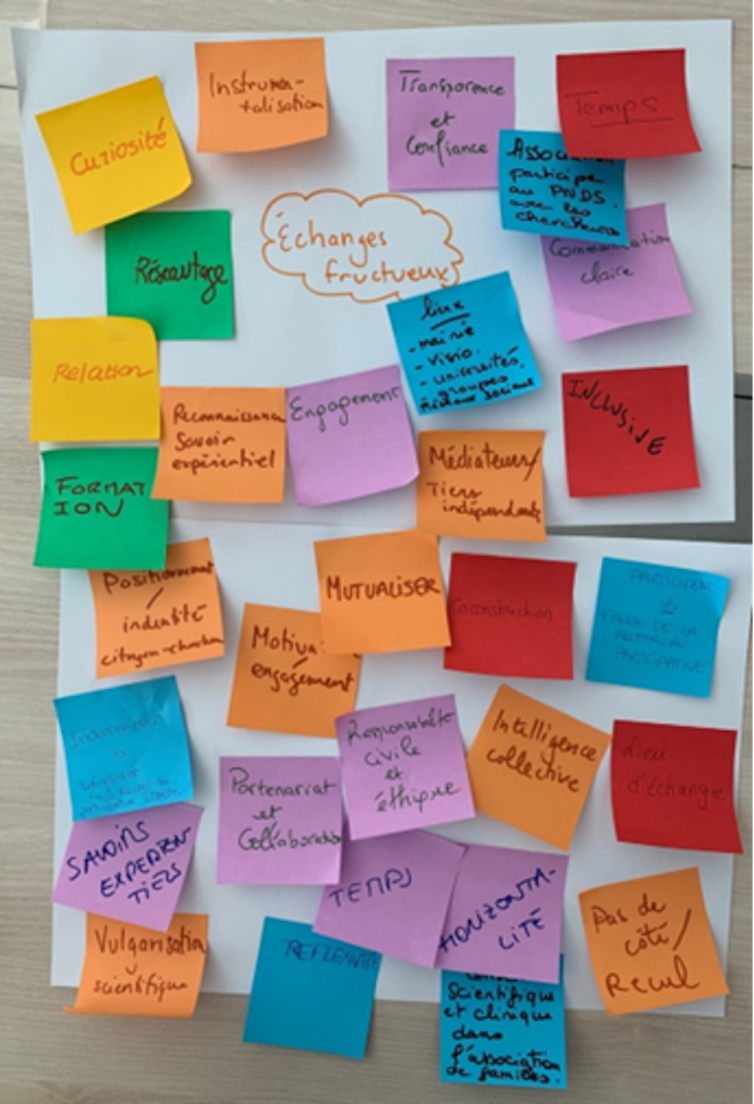 Instrumen-
talisation
Transparence
et
Confiance
Temps
Curiosité
participe
au PNDS
avec les
chercheurs
Échanges
fructueux
Réseautage
claire
lieux
- mairie
- visio.
- universités
groupes
réseaux sociaux
Relation
Reconnaissance
Savoir
expérientiel
Engagement
INCLUSIVE
Médiateurs/
Tiers
indépendants
FORMAT
ION
Positionnement
/
indentité
citoyen-chercheur
MUTUALISER
Coconstruction
PARTICIPER
FAIRE DE LA
RECHERCHE
PARTICIPATIVE
engagement
Responsabilité
civile
et
éthique
Intelligence
collective
Lieu
d'échange
Partenariat
et
Collaboration
SAVOIRS
EXPERIEN
TIELS
TEMPS
HORIZONTA-
LITÉ
Pas de
côté/
Recul
Vulgarisation
scientifique
REFLEXIVITE
Scientifique
et clinique
dans
l'association
de familles.